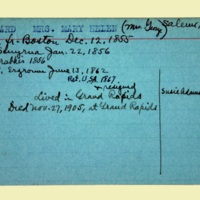 ARD MRS. MARY HELEN (Mrs Guy) Salem,
Fr. Boston Dec. 12, 1855
Smyrna Jan. 22, 1856
1856
Erzroum June 13, 1862
Ret. U.S. 1867
& resigned
Lived in Grand Rapids
Died Nov. 27, 1905, at Grand Rapids
Susie